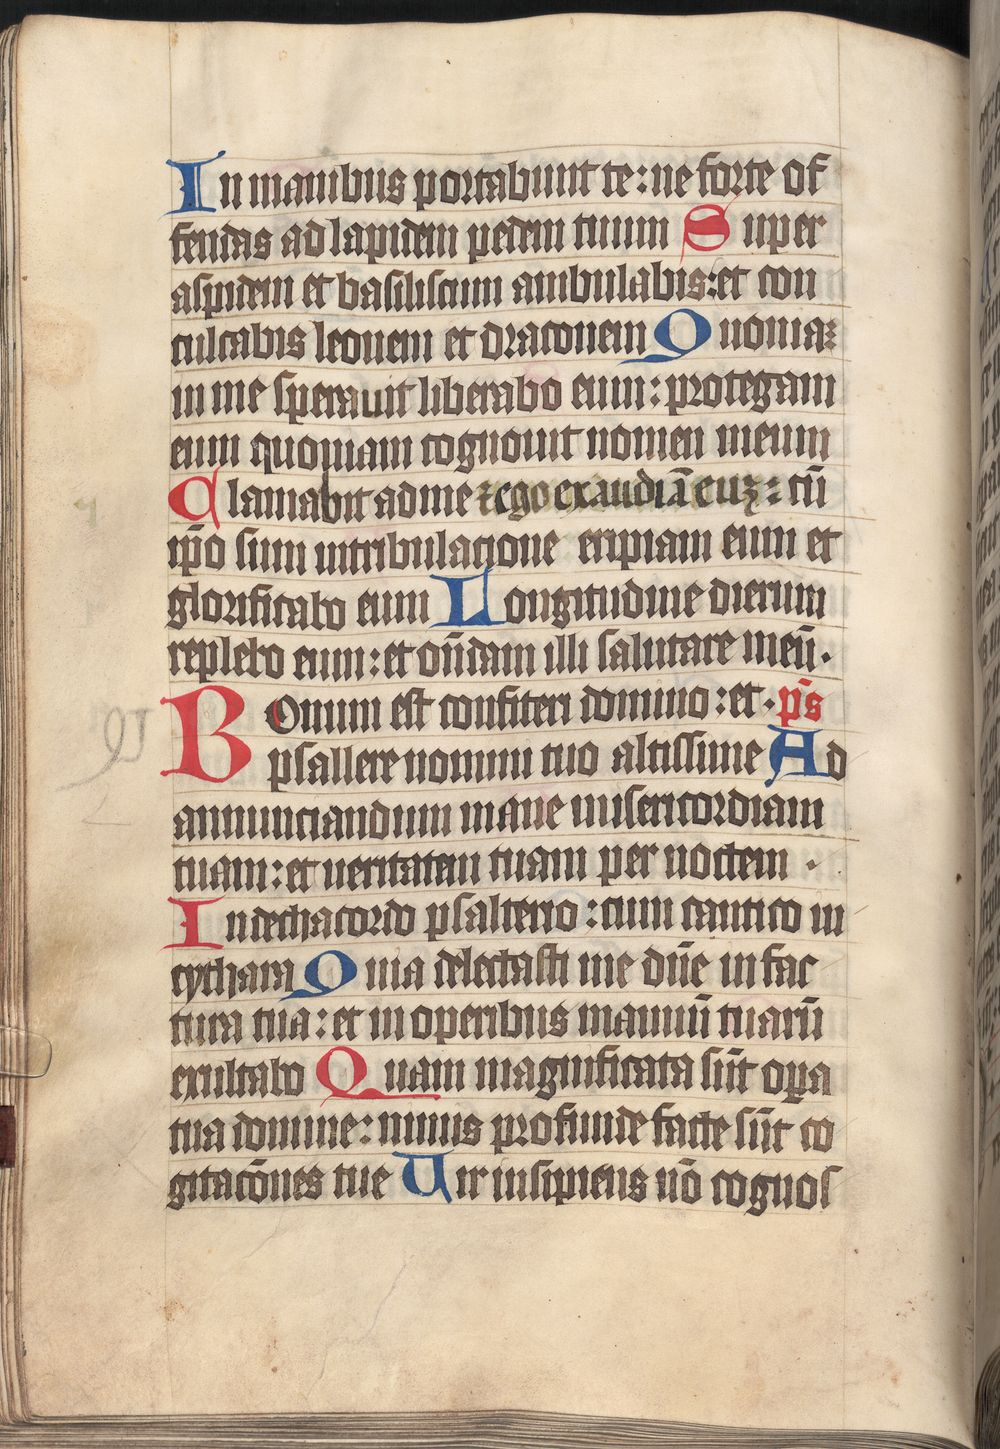 In manibus portabunt te : ne forte of
fendas ad lapidem pedem tuum Super
aspidem et basiliscum ambulabis : et con
culcabis leonem et draconem Quoniaꝫ
in me sperauit liberabo eum : protegam
eum quoniam cognouit nomen meum
Clamabit ad me ⁊ ego exaudiā euꝫ : cū
ip̄o sum in tribulacione eripiam eum et
glorificabo eum Longitudine dierum
replebo eum : et on̄dam illi salutare meū .
Bonum est confiteri domino : et . p̄s
psallere nomini tuo altissime Ad
annunciandum mane misericordiam
tuam : et ueritatem tuam per noctem .
In dechacordo psalterio : cum cantico in
cythara Quia delectasti me dn̄e in fac
tura tua : et in operibus manuū tuarū
exultabo Quam magnificata sūt oꝑa
tua domine : nimis profunde facte sūt co
gitacōnes tue Uir insipiens nō cognos